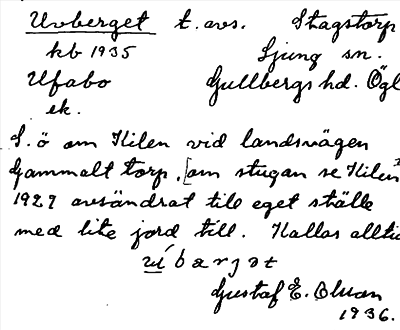 Uvberget t. avs. Stagstorp
kb 1935 Ljung sn.
Ufabo Gullbergs hd. Ögl
ek.
S. ö om Kilen vid landsvägen
Gammalt torp, [om stugan se Kilen]
1927 avsöndrat till eget ställe
med lite jord till. Kallas allti
úbærjət
Gustaf E. Olsson
1936.